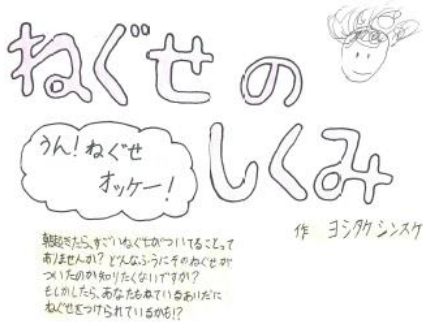 ねぐせの
しくみ
うん!ねぐせ
オッケー!
作 ヨシタケシンスケ
朝起きたら、すごいねぐせがついてることって
ありませんか?どんなふうにそのねぐせが
ついたのか知りたくないですか?
もしかしたら、あなたもねているあいだに
ねぐせをつけられているかも!?